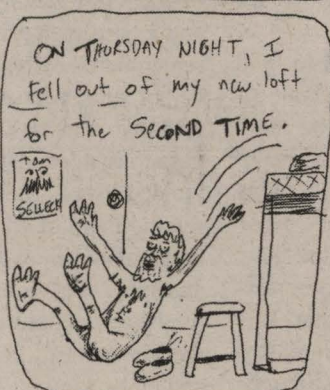 ON THURSDAY NIGHT, I
fell out of my new loft
for the SECOND TIME.
Tom
SELLECK